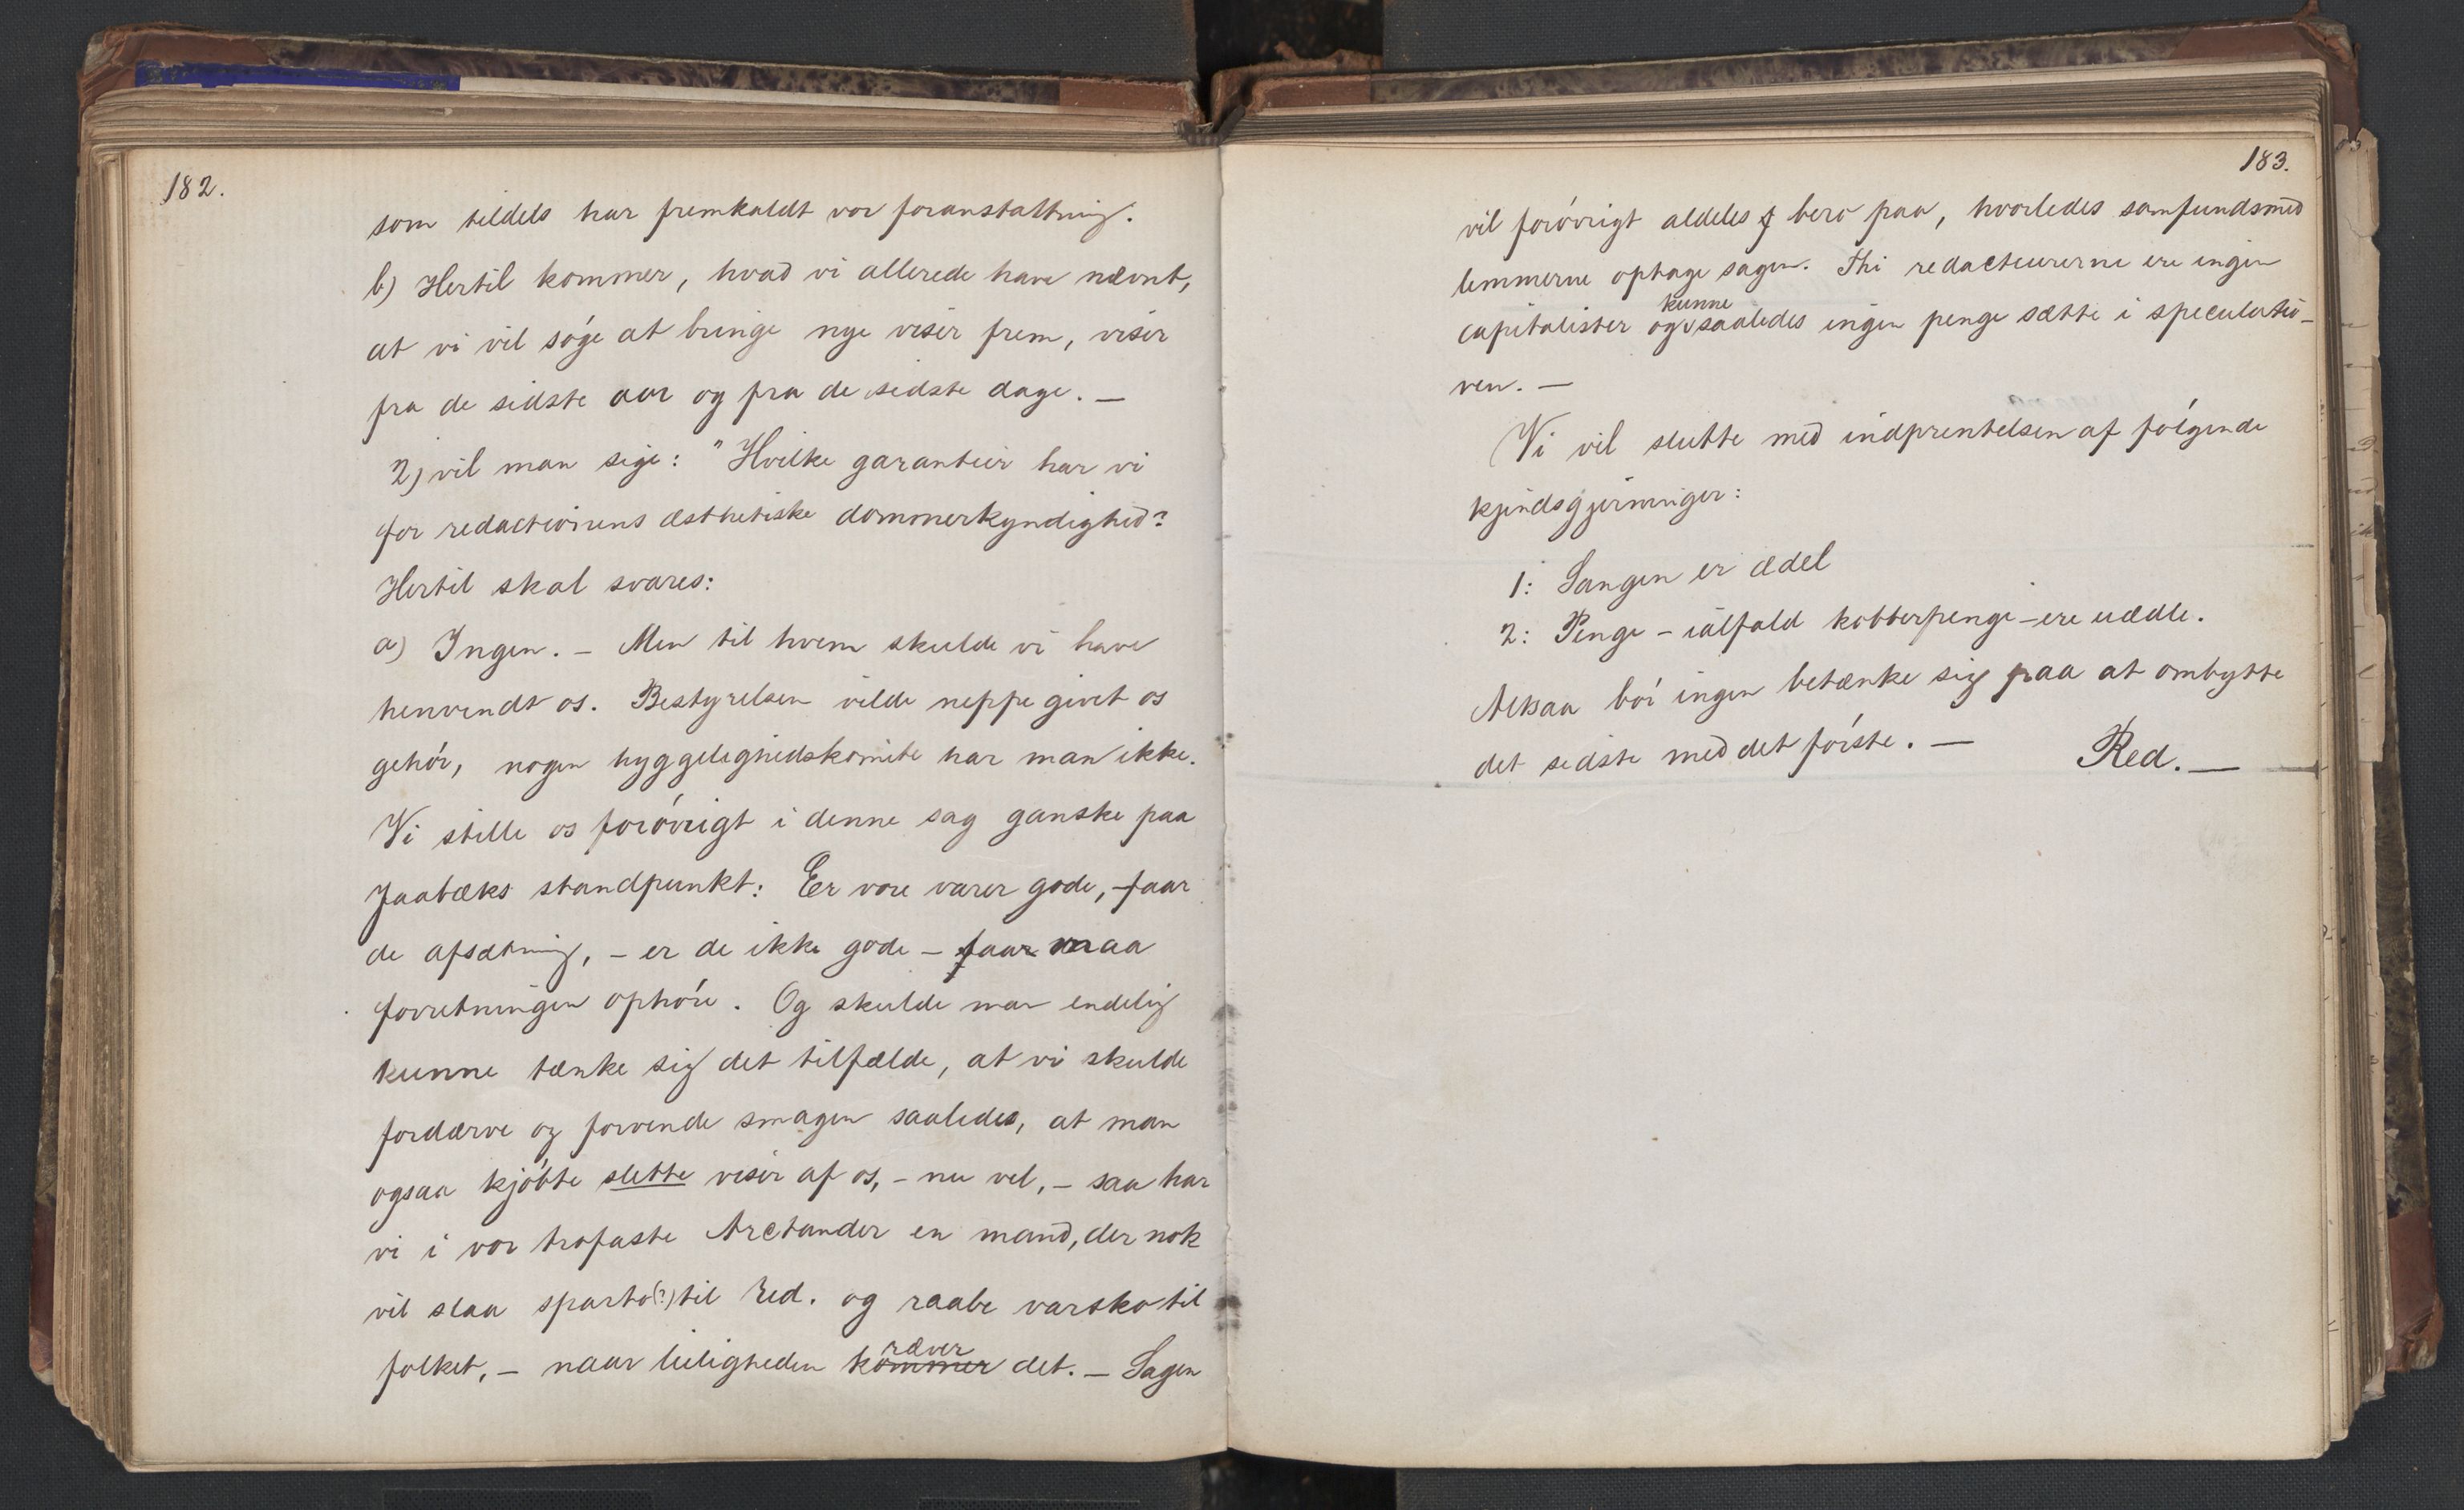 182.
som tildels har fremkaldt vor foranstaltning.
b) Hertil kommer, hvad vi allerede have nævnt,
at vi vil søge at bringe nye viser frem, viser
fra de sidste aar og fra de sidste dage. —
2) vil man sige: "Hvilke garantier har vi
for redactionens æsthetiske dommerkyndighed?
Hertil skal svares:
a) Ingen. – Men til hvem skulde vi have
henvendt os. Bestyrelsen vilde neppe givet os
gehør, nogen hyggelighedskomite har man ikke.
Vi stille os forøvrigt i denne sag ganske paa
Jaabæks standpunkt: Er vore varer gode, – faar
de afsætning, – er de ikke gode – faar maa
forretningen ophøre. Og skulde man endelig
kunne tænke sig det tilfælde, at vi skulde
fordærve og forvende smagen saaledes, at man
ogsaa kjøbte slette viser af os, – nu vel, – saa har
vi i vor trofaste Arctander en mand, der nok
vil slaa sparto(?) til red. og raabe varsko til
ræver
folket, – naar leiligheden kommer det. — Sagen
183.
vil forøvrigt aldeles bero paa, hvorledes samfundsmed
lemmerne optage sagen. Thi redacteurerne ere ingen
kunne
capitalister og saaledes ingen penge sætte i speculatio-
nen. —
Vi vil slutte med indprentelsen af følgende
kjendsgjerninger:
1: Sangen er ædel
2: Penge – ialfald kobberpenge – ere uædle.
Altsaa bør ingen betænke sig paa at ombytte
det sidste med det første. —
Red. —